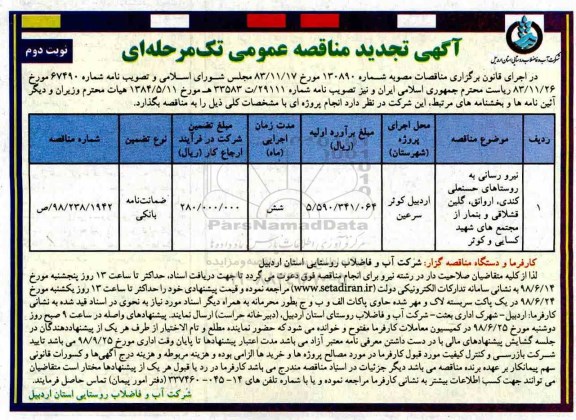 شرکت آب و فاضلاب روستایی استان اردبیل
آگهی تجدید مناقصه عمومی تک‌مرحله‌ای
نوبت دوم
در اجرای قانون برگزاری مناقصات مصوبه شماره ۱۳۰۸۹۰ مورخ ۸۳/۱۱/۱۷ مجلس شورای اسلامی و تصویب نامه شماره ۶۷۴۹۰ مورخ
۸۳/۱۱/۲۶ ریاست محترم جمهوری اسلامی ایران و نیز تصویب نامه شماره ۲۹۱۱۱/ت ۳۳۵۸۳ هـ مورخ ۱۳۸۴/۵/۱۱ هیات محترم وزیران و دیگر
آئین نامه ها و بخشنامه های مرتبط، این شرکت در نظر دارد انجام پروژه ای با مشخصات کلی ذیل را به مناقصه بگذارد.
ردیف | موضوع مناقصه | محل اجرای پروژه (شهرستان) | مبلغ برآورد اولیه (ریال) | مدت زمان اجرایی (ماه) | مبلغ تضمین شرکت در فرآیند ارجاع کار (ریال) | نوع تضمین | شماره مناقصه
۱ | نیرو رسانی به روستاهای حسنعلی کندی، ارواتق، گلین قشلاقی و بنمار از مجتمع های شهید کسایی و کوثر | اردبیل کوثر سرعین | ۵/۵۹۰/۳۴۱/۰۶۴ | شش | ۲۸۰/۰۰۰/۰۰۰ | ضمانت‌نامه بانکی | ۹۸/۲۳۸/۱۹۴۲/ص
ParsNamadData
کارفرما و دستگاه مناقصه گزار: شرکت آب و فاضلاب روستایی استان اردبیل
لذا از کلیه متقاضیان صلاحیت دار در رشته نیرو برای انجام مناقصه فوق دعوت می گردد تا جهت دریافت اسناد، حداکثر تا ساعت ۱۳ روز پنجشنبه مورخ
۹۸/۶/۱۴ به نشانی سامانه تدارکات الکترونیکی دولت (www.setadiran.ir) مراجعه نموده و قیمت پیشنهادی خود را حداکثر تا ساعت ۱۳ روز یکشنبه مورخ
۹۸/۶/۲۴ در یک پاکت سربسته لاک و مهر شده حاوی پاکات الف و ب و ج بطور محرمانه به همراه دیگر اسناد مورد نیاز به نحوی در اسناد قید شده به نشانی
کارفرما: اردبیل - شهرک اداری بعثت - شرکت آب و فاضلاب روستای استان اردبیل، (دبیرخانه حراست) ارسال نمایند. پیشنهادهای واصله در ساعت ۹ صبح روز
دوشنبه مورخ ۹۸/۶/۲۵ در کمیسیون معاملات کارفرما مفتوح و خوانده می شود که حضور نماینده مطلع و تام الاختیار از طرف هر یک از پیشنهاددهندگان در
جلسه گشایش پیشنهادهای مالی با در دست داشتن معرفی نامه معتبر آزاد می باشد مدت اعتبار پیشنهادها تا پایان وقت اداری مورخ ۹۸/۹/۲۵ می باشد تایید
شرکت بازرسی و کنترل کیفیت مورد قبول کارفرما در مورد مصالح پروژه ها و خرید ها الزامی بوده و هزینه مربوطه و هزینه درج آگهی‌ها و کسورات قانونی
سهم پیمانکار بر عهده برنده مناقصه می باشد دیگر جزئیات در اسناد مناقصه مندرج می باشد کارفرما در رد یا قبول هر یک از پیشنهادها مختار است متقاضیان
می توانند جهت کسب اطلاعات بیشتر به نشانی کارفرما مراجعه نموده و یا با شماره تلفن های ۱۴- ۰۴۵- ۳۳۷۴۶۰ (دفتر امور پیمان) تماس حاصل فرمایند.
شرکت آب و فاضلاب روستایی استان اردبیل